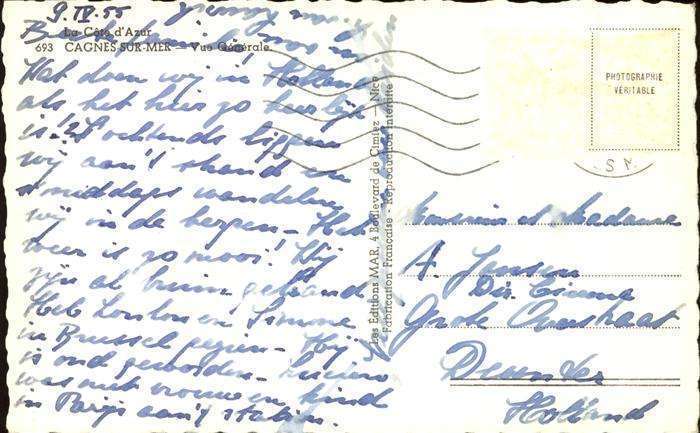 9.IV.55
La Côte d'Azur
693 CAGNES-SUR-MER — Vue Générale
Wat doen wij in Holland
als het hier zo heerlijk
is! 's ochtends liggen
wij aan't strand en
's middags wandelen
wij in de bergen - Het
weer is zo mooi! Wij
zijn al bruin gebrand
Heb London en Simone
in Brussel gezien - Hij
is oud geworden -
was met vrouw en kind
in Parijs aan't station.
Les Editions MAR, 4 Boulevard de Cimiez — Nice
Fabrication Française - Reproduction Interdite
PHOTOGRAPHIE
VÉRITABLE
Monsieur et Madame
A. Jansen
Grote Overstraat
Deventer
Holland